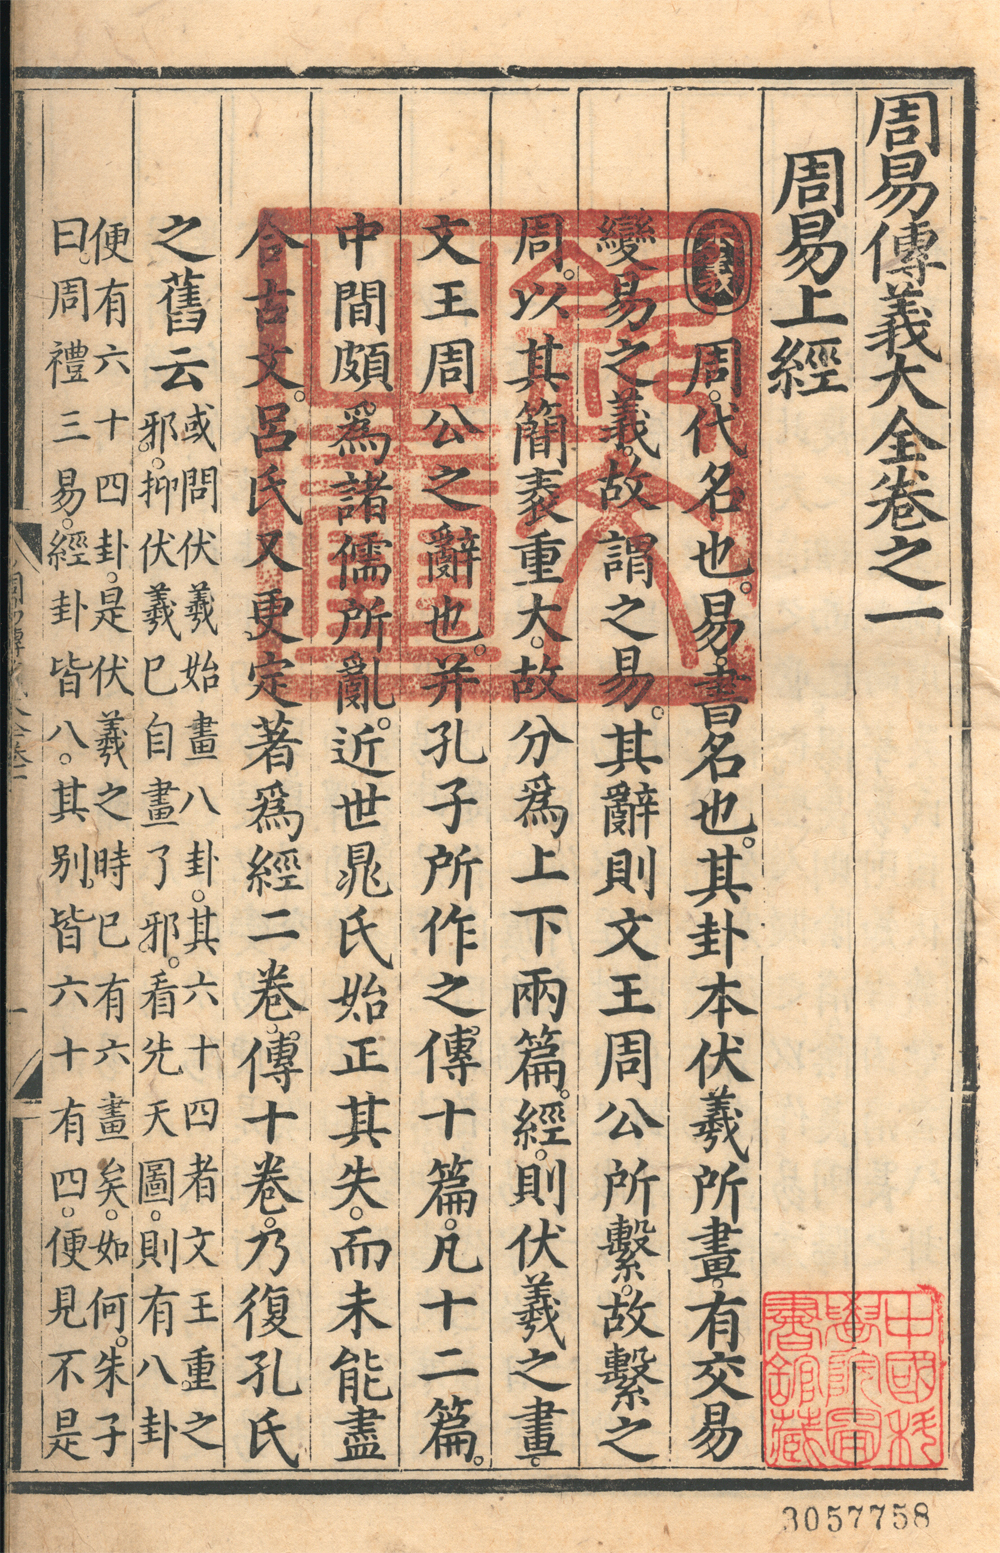 周易傳義大全卷之一
周易上經
本義 周。代名也。易。書名也。其卦本伏羲所畫。有交易
變易之義。故謂之易。其辭則文王周公所繫。故繫之
周。以其簡袠重大。故分爲上下兩篇。經。則伏羲之畫。
文王周公之辭也。并孔子所作之傳十篇。凡十二篇。
中間頗爲諸儒所亂。近世晁氏始正其失。而未能盡
合古文。呂氏又更定著爲經二卷。傳十卷。乃復孔氏
之舊云
或問伏羲始畫八卦。其六十四者文王重之
邪。抑伏羲已自畫了邪。看先天圖。則有八卦
便有六十四卦。是伏羲之時已有六畫矣。如何。朱子
曰。周禮三易。經卦皆八。其别。皆六十有四。便見不是
中國科學院圖書館藏
3057758